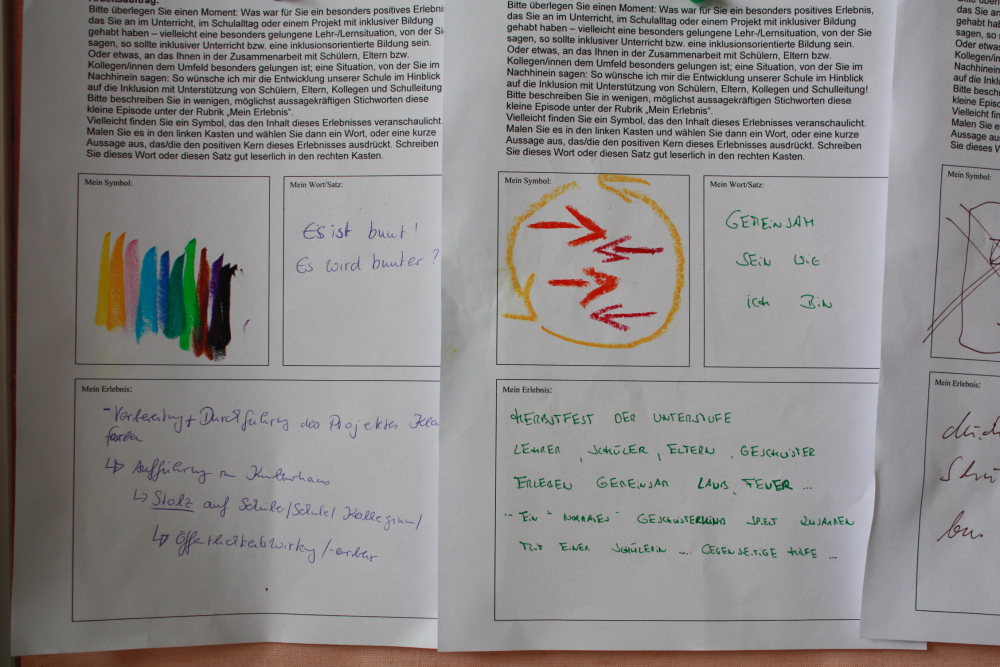 Arbeitsauftrag:
Bitte überlegen Sie einen Moment: Was war für Sie ein besonders positives Erlebni
das Sie an im Unterricht, im Schulalltag oder einem Projekt mit inklusiver Bildung
gehabt haben – vielleicht eine besonders gelungene Lehr-/Lernsituation, von der Si
sagen, so sollte inklusiver Unterricht bzw. eine inklusionsorientierte Bildung sein.
Oder etwas, an das Ihnen in der Zusammenarbeit mit Schülern, Eltern bzw.
Kollegen/innen dem Umfeld besonders gelungen ist; eine Situation, von der Sie im
Nachhinein sagen: So wünsche ich mir die Entwicklung unserer Schule im Hinblick
auf die Inklusion mit Unterstützung von Schülern, Eltern, Kollegen und Schulleitung
Bitte beschreiben Sie in wenigen, möglichst aussagekräftigen Stichworten diese
kleine Episode unter der Rubrik „Mein Erlebnis“.
Vielleicht finden Sie ein Symbol, das den Inhalt dieses Erlebnisses veranschaulicht.
Malen Sie es in den linken Kasten und wählen Sie dann ein Wort, oder eine kurze
Aussage aus, das/die den positiven Kern dieses Erlebnisses ausdrückt. Schreiben
Sie dieses Wort oder diesen Satz gut leserlich in den rechten Kasten.
Mein Symbol:
Mein Wort/Satz:
Es ist bunt!
Es wird bunter?
Mein Erlebnis:
- Vorbereitung + Durchführung des Projektes
farben
↳ Aufführung im Kulturhaus
↳ Stolz auf Schüler/Schule/
↳
Bitte überlegen Sie einen Moment: Was war für Sie ein besonders positives Erlebnis,
das Sie an im Unterricht, im Schulalltag oder einem Projekt mit inklusiver Bildung
gehabt haben – vielleicht eine besonders gelungene Lehr-/Lernsituation, von der Sie
sagen, so sollte inklusiver Unterricht bzw. eine inklusionsorientierte Bildung sein.
Oder etwas, an das Ihnen in der Zusammenarbeit mit Schülern, Eltern bzw.
Kollegen/innen dem Umfeld besonders gelungen ist; eine Situation, von der Sie im
Nachhinein sagen: So wünsche ich mir die Entwicklung unserer Schule im Hinblick
auf die Inklusion mit Unterstützung von Schülern, Eltern, Kollegen und Schulleitung!
Bitte beschreiben Sie in wenigen, möglichst aussagekräftigen Stichworten diese
kleine Episode unter der Rubrik „Mein Erlebnis“.
Vielleicht finden Sie ein Symbol, das den Inhalt dieses Erlebnisses veranschaulicht.
Malen Sie es in den linken Kasten und wählen Sie dann ein Wort, oder eine kurze
Aussage aus, das/die den positiven Kern dieses Erlebnisses ausdrückt. Schreiben
Sie dieses Wort oder diesen Satz gut leserlich in den rechten Kasten.
Mein Symbol:
Mein Wort/Satz:
GEMEINSAM
SEIN WIE
ICH BIN
Mein Erlebnis:
HERBSTFEST DER UNTERSTUFE
LEHRER, SCHÜLER, ELTERN, GESCHWISTER
ERLEBEN GEMEINSAM FEUER ...
... EIN "NORMALES" GESCHWISTERKIND SPIELT ZUSAMMEN
MIT EINER SCHÜLERIN .... GEGENSEITIGE HILFE ...
das Sie an
gehabt
sagen, so
Oder etwa
Kollegen/
Nachhinein
auf die Ink
Bitte besch
kleine Epis
Vielleicht
Malen Sie e
Aussage au
Sie dieses W
Mein Symbol:
Mein Erlebnis: